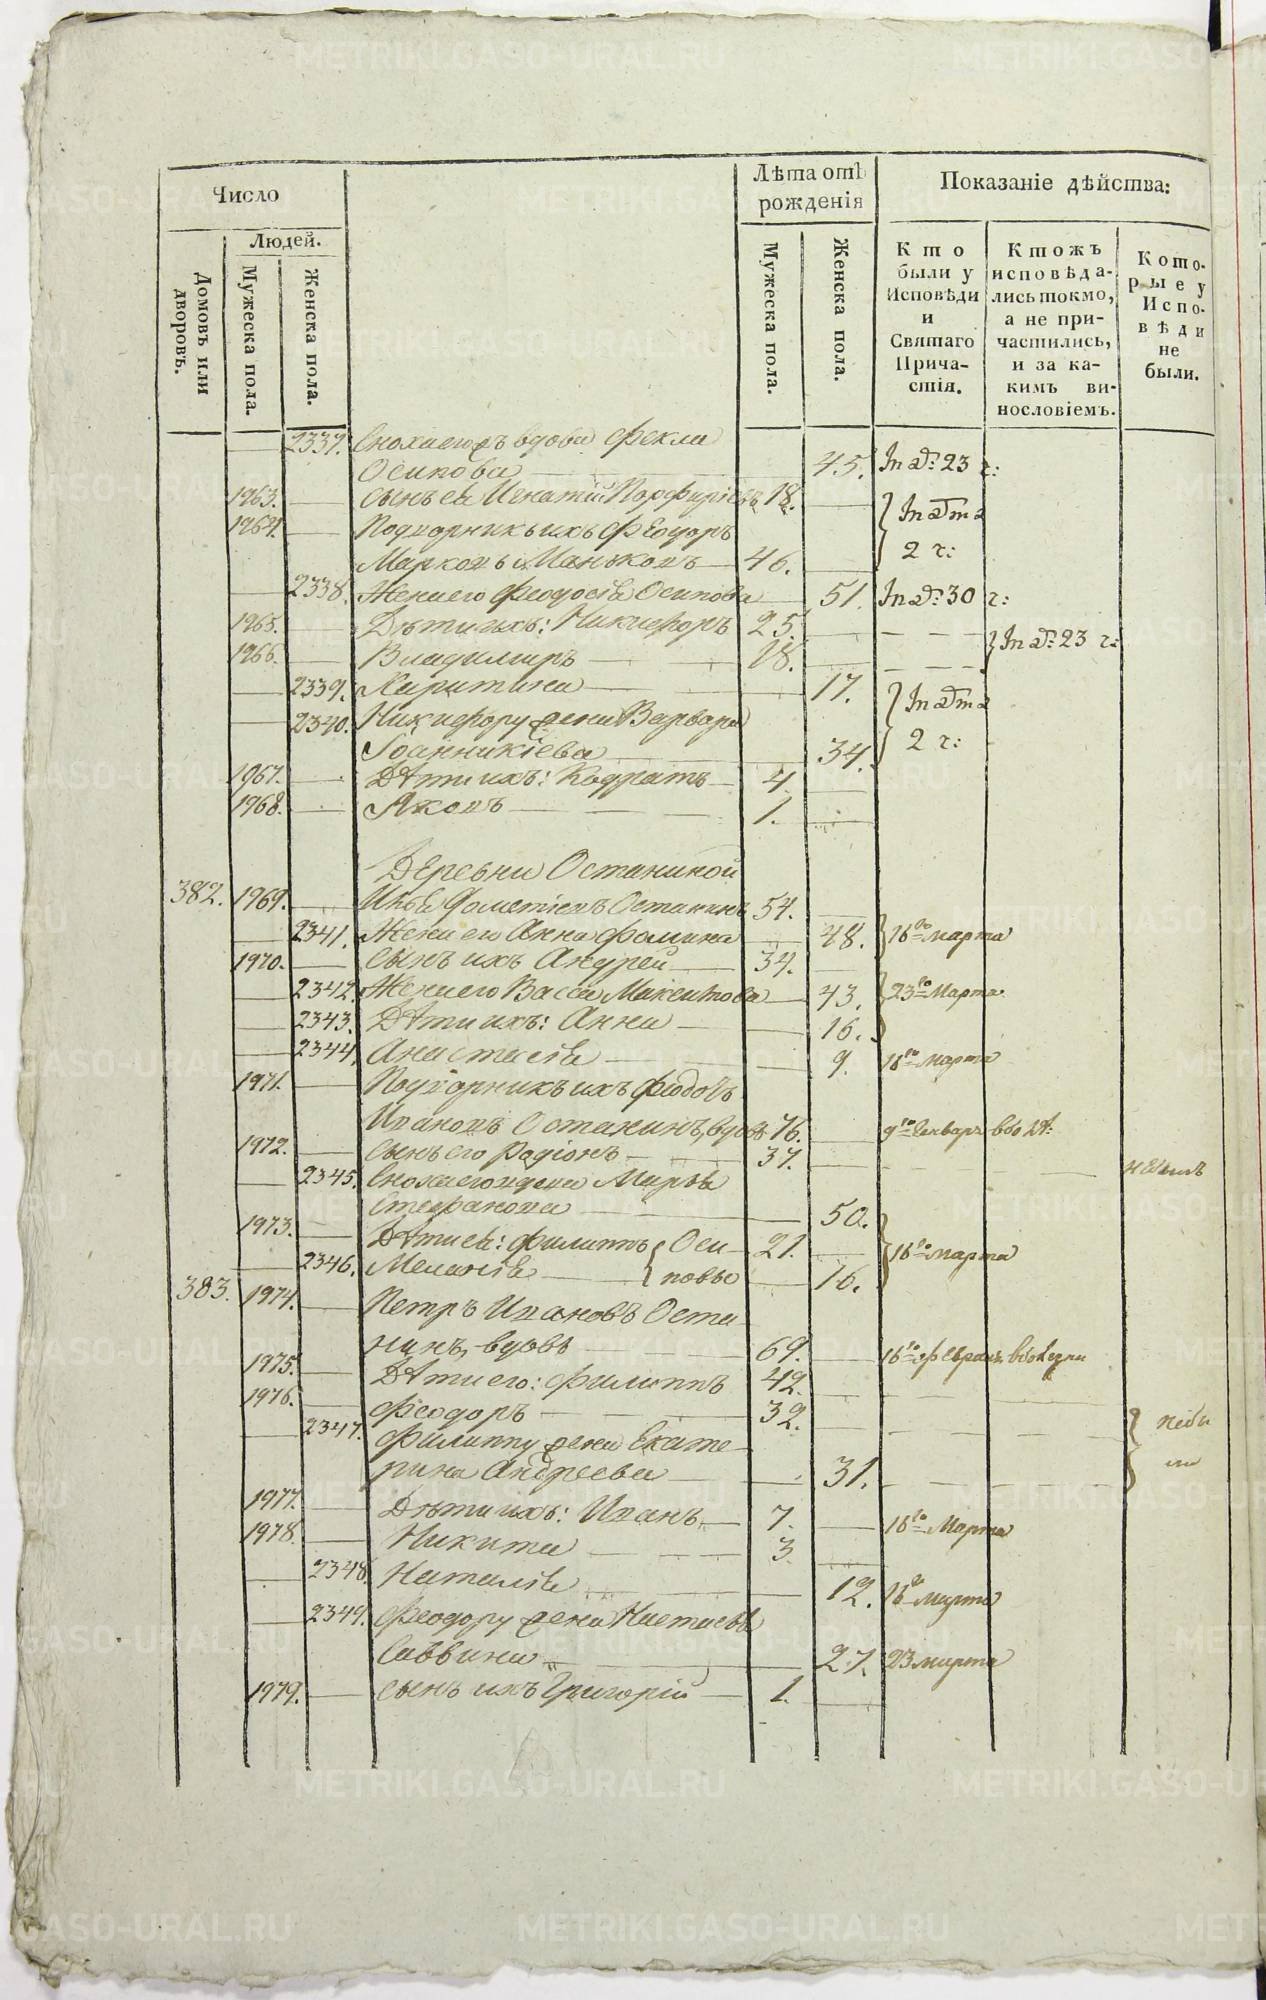 Число
Людей.
Домовъ или дворовъ.
Мужеска пола.
Женска пола.
Лѣта отъ рожденія
Мужеска пола.
Женска пола.
Показаніе дѣйства:
Кто были у Исповѣди и Святаго Причастія.
Ктожъ исповѣдались токмо, а не причастились, и за какимъ винословіемъ.
Которые у Исповѣди не были.
2337. Сноха его вдова Фекла
Осипова 45. 23
1963. Сынъ ея Игнатій Порфиріевъ 18.
1964. Подворникъ ихъ Феодоръ
Марковъ Маньковъ 46. 2
2338. Жена его Феодосія Осипова 51. 30
1965. Дѣти ихъ: Никифоръ 25. 23
1966. Владимиръ 18.
2339. Харитина 17.
2340. Никифору жена Варвара
Іоанникіева 34. 2
1967. Дѣти ихъ: Кодратъ 4.
1968. Яковъ 1.
Деревни Останиной
382. 1969. Илья Фометіевъ Останинъ 54.
2341. Жена его Анна Фомина 48. 16го марта
1970. Сынъ ихъ Андрей 34.
2342. Жена его Васса Макситова 43. 23го Марта
2343. Дѣти ихъ: Анна 16.
2344. Анастасія 9. 16го марта
1971. Подворникъ ихъ Феодоръ
Ивановъ Останинъ, вдовъ 76. 9го Генваря
1972. Сынъ его Родіонъ 37. не былъ
2345. Сноха его вдова Марья
Стефанова 50.
1973. Дѣти ея: Филиппъ Оси- 21. 16го марта
2346. Меланія повы 16.
383. 1974. Петръ Ивановъ Оста
нинъ, вдовъ 69. 16го Февраля
1975. Дѣти его: Филиппъ 42.
1976. Феодоръ 32. не бы
2347. Филиппу жена Екате-
рина Андреева 31. ли
1977. Дѣти ихъ: Иванъ 7. 16го Марта
1978. Никита 3
2348. Наталія 12. 16го марта
2349. Феодору жена Настасья
Саввина 27. 23 марта
1979. Сынъ ихъ Григорій 1.
METRIKI.GASO-URAL.RU